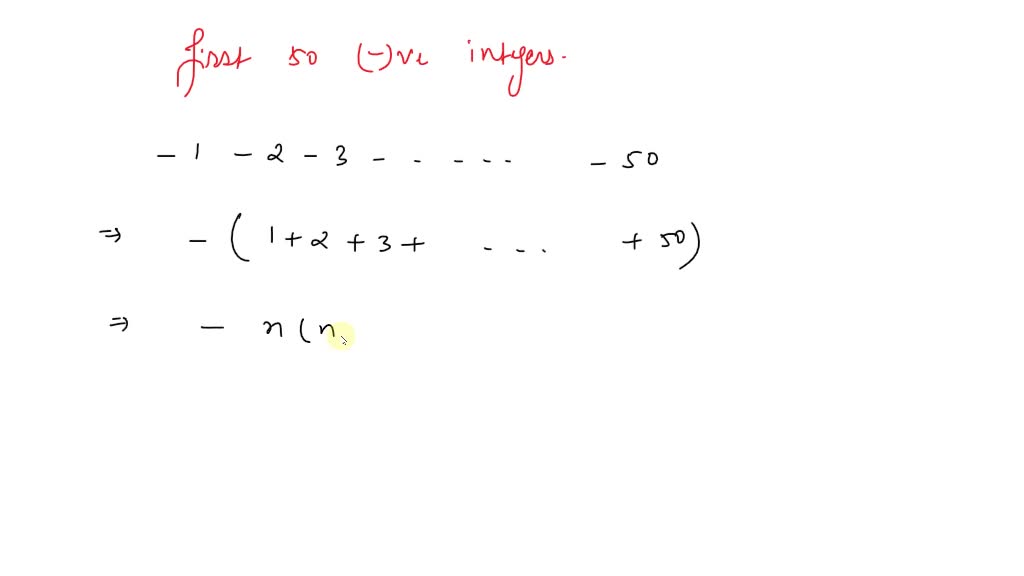 first 50 (-)ve intgers.
- 1 - 2 - 3 - - - - - - 50
⇒ - ( 1 + 2 + 3 + - - - + 50 )
⇒ - n ( n